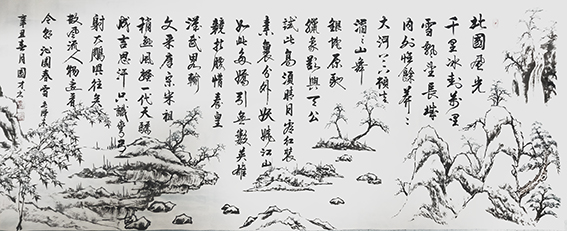 北國風光
千里冰封萬里
雪飄望長城
內外惟餘莽々
大河上下頓失
滔々山舞
銀蛇原馳
蠟象欲與天公
試比高須晴日看紅裝
素裹分外妖嬈江山
如此多嬌引無數英雄
競折腰惜秦皇
漢武略輸
文采唐宗宋祖
稍遜風騷一代天驕
成吉思汗只識彎弓
射大鵰俱往矣
數風流人物還看
今朝 沁園春雪
辛丑春月國才